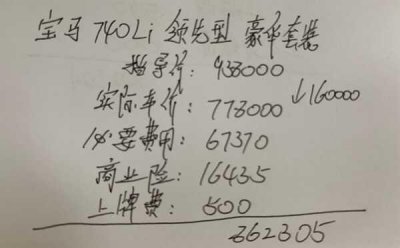 宝马 740Li 领先型 豪华套装
指导价: 938000
实际车价: 778000 ↓160000
必要费用: 67370
商业险: 16435
上牌费: 500
862305